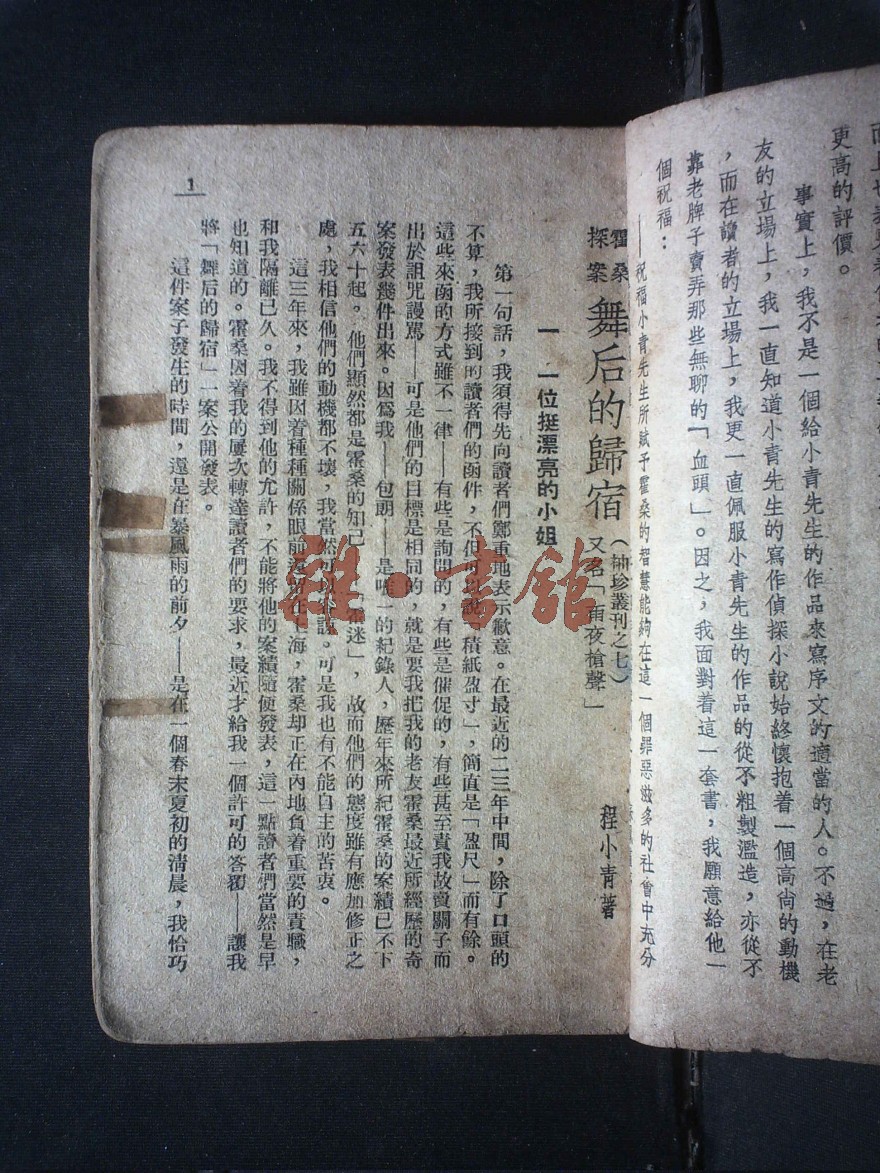 更高的評價。
事實上，我不是一個給小青先生的作品來寫序文的適當的人。不過，在老
友的立場上，我一直知道小青先生的寫作偵探小說始終懷抱着一個高尙的動機
，而在讀者的立場上，我更一直佩服小青先生的作品的從不粗製濫造，亦從不
靠老牌子賣弄那些無聊的「血頭」。因之，我面對着這一套書，我願意給他一
個祝福：
——祝福小青先生所賦予霍桑的智慧能夠在這一個罪惡滋多的社會中充分
霍桑
探案
舞后的歸宿
（袖珍叢刊之七）
又名「雨夜槍聲」
程小青著
一 一位挺漂亮的小姐
第一句話，我須得先向讀者們鄭重地表示歉意。在最近的二三年中間，除了口頭的
不算，我所接到的讀者們的函件，不但可以說「積紙盈寸」，簡直是「盈尺」而有餘。
這些來函的方式雖不一律——有些是詢問的，有些是催促的，有些甚至責我故賣關子而
出於詛咒謾駡——可是他們的目標是相同的，就是要我把我的老友霍桑最近所經歷的奇
案發表幾件出來。因爲我——包朗——是唯一的紀錄人，歷年來所紀霍桑的案績已不下
五六十起。他們顯然都是霍桑的知己——「霍迷」，故而他們的態度雖有應加修正之
處，我相信他們的動機都不壞，我當然可以不說。可是我也有不能自主的苦衷。
這三年來，我雖因着種種關係眼前還留在上海，霍桑却正在內地負着重要的責職，
和我隔離已久。我不得到他的允許，不能將他的案績隨便發表，這一點讀者們當然是早
也知道的。霍桑因着我的屢次轉達讀者們的要求，最近才給我一個許可的答覆——讓我
將「舞后的歸宿」一案公開發表。
這件案子發生的時間，還是在暴風雨的前夕——是在一個春末夏初的淸晨，我恰巧
1
雜·書館